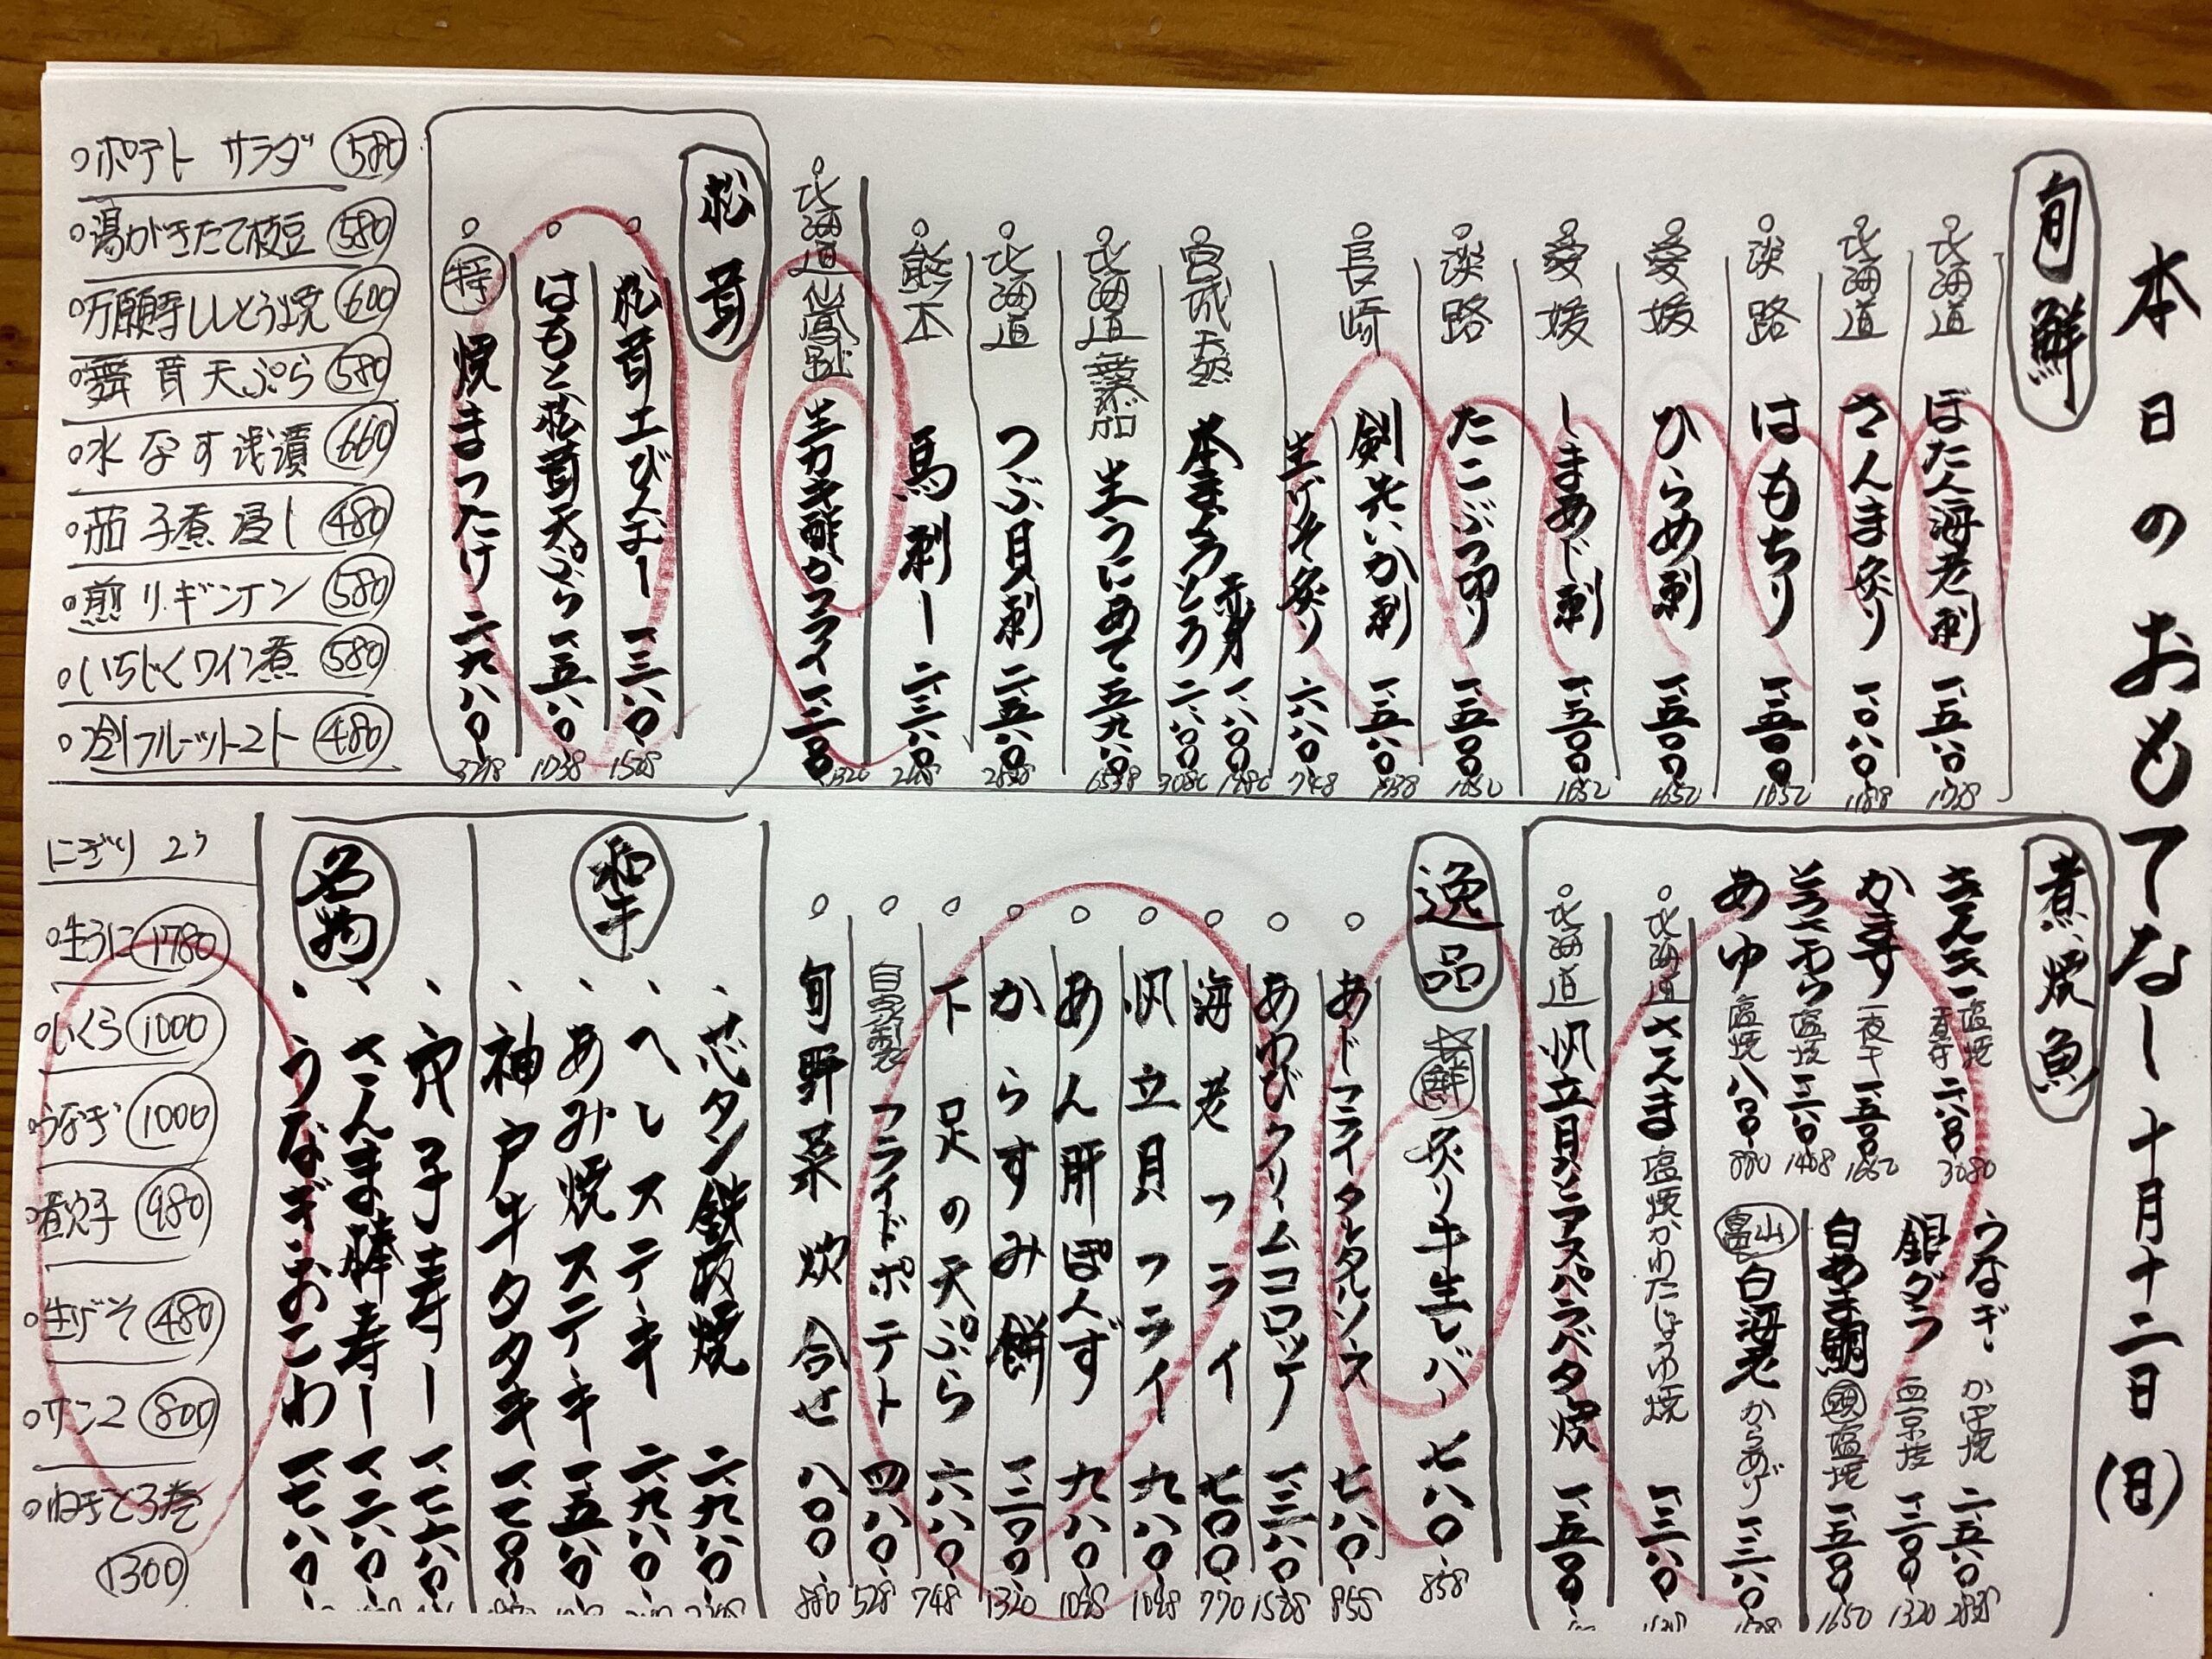 本日のおもてなし 十月十二日(日)
旬鮮
北海道 ぼたん海老刺 一、五八〇 1738
北海道 さんま炙り 一、〇八〇 1188
淡路 はもちり 一、五〇〇 1650
愛媛 ひらめ刺 一、五〇〇 1650
愛媛 しまあじ刺 一、五〇〇 1650
淡路 たこぶつ切り 一、五〇〇 1650
長崎 剣先いか刺 一、五八〇 1738
生げそ炙り 六八〇 748
宮城 天然 本まぐろ 赤身 一、八〇〇 1980
とろ 二、八〇〇 3080
北海道 無添加 生うにあて 五、九八〇 6578
北海道 つぶ貝刺 二、五八〇 2838
熊本 馬刺し 二、三八〇
北海道 仙鳳趾 生カキ酢かフライ 一、二〇〇 1320
松茸
松茸土びんむし 一、三八〇 1518
はもと松茸天ぷら 一、五八〇 1738
特 焼まつたけ 二、九八〇 3278
ポテトサラダ 580
湯がきたて枝豆 580
万願寺ししとう焼 600
舞茸天ぷら 580
水なす浅漬 660
茄子煮浸し 480
煎りギンナン 580
いちじくワイン煮 580
冷しフルーツトマト 480
煮・焼魚
塩焼 煮付 二、八〇〇 3080
かます 一夜干 一、五〇〇 1650
塩焼 一、二八〇 1408
あゆ 塩焼 八〇〇 880
うなぎ かば焼 二、五八〇 2838
銀ダラ 西京焼 一、二〇〇 1320
白あま鯛 塩焼 一、五〇〇 1650
富山 白海老 からあげ 一、三八〇
北海道 さんま 塩焼かわたじょうゆ焼 一、三八〇
北海道 帆立貝とアスパラバタ炊 一、五〇〇
逸品
炙り牛生レバー 七八〇 858
あじフライタルタルソース 七八〇 858
あわびクリームコロッケ 一、三八〇 1518
海老フライ 七〇〇 770
帆立貝フライ 九八〇 1078
あん肝ぽんず 九八〇 1078
からすみ餅 一、二〇〇 1320
下足の天ぷら 六八〇 748
自家製 フライドポテト 四八〇 528
旬野菜炊合せ 八〇〇 880
和牛
芯タン鉄板焼 二、九八〇
へレステーキ 二、九八〇
あみ焼ステーキ 一、五八〇
神戸牛タタキ
名物
穴子寿し 一、七八〇
さんま棒寿し 一、二八〇
うなぎおこわ 一、七八〇
にぎり 2ケ
生うに 1780
いくら 1000
うなぎ 1000
煮穴子 980
生げそ 480
サンマ 800
ねぎとろ巻
1300